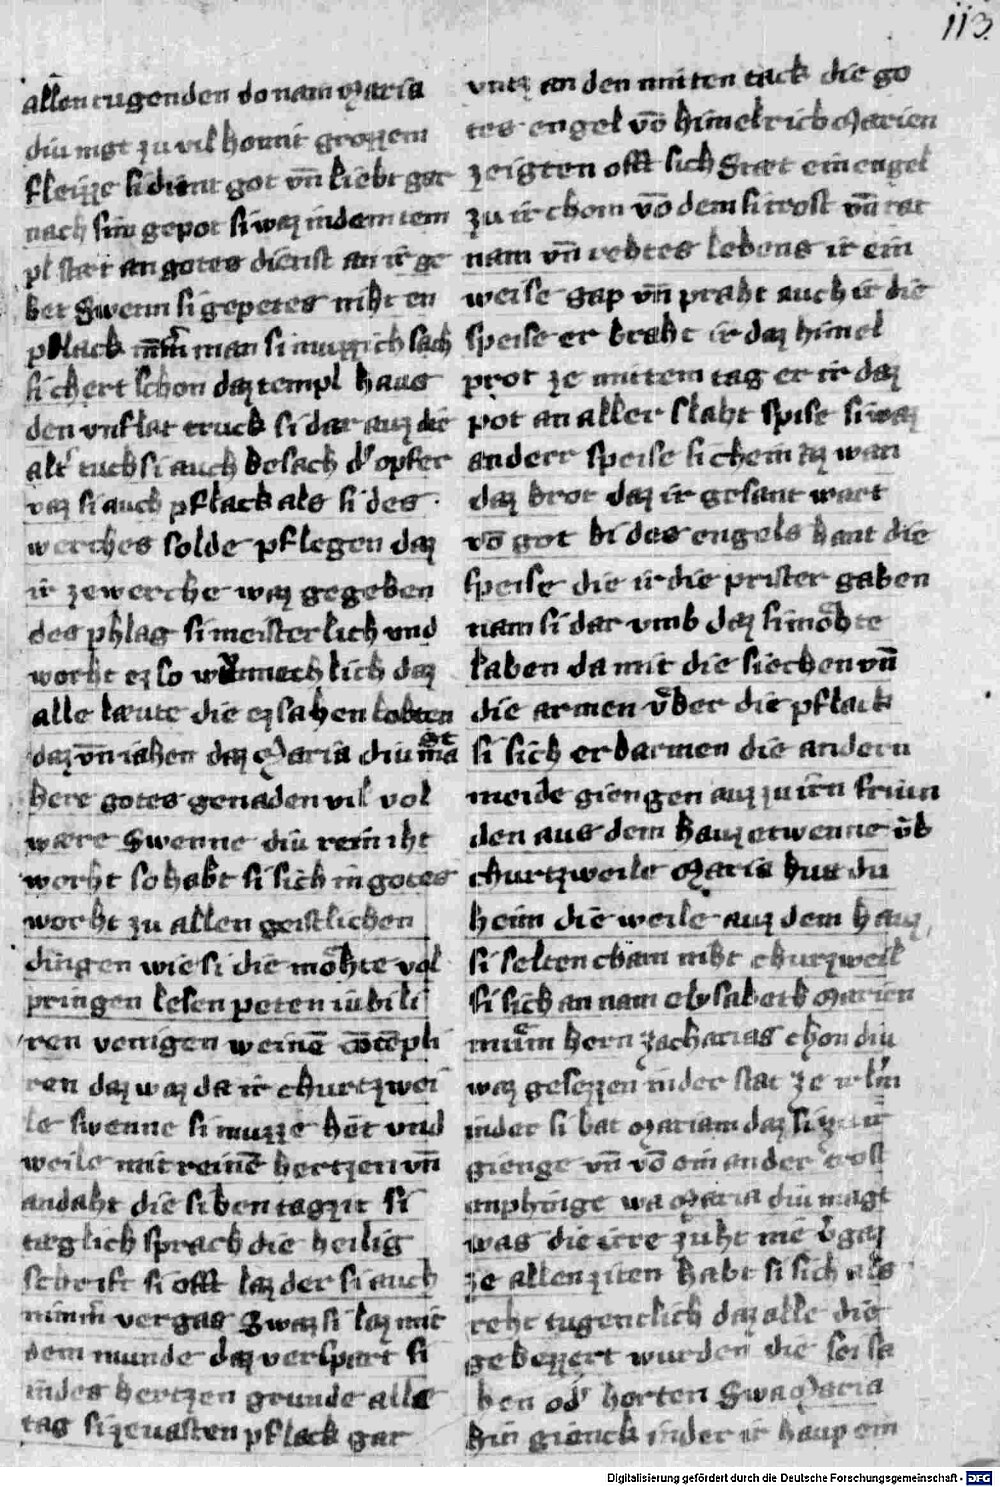 113.
allen tugenden do nam Maria
diu mgt zu vil hount grozzem
fleizze si dient got vn̄ liebt gar
nach sim gepot si waz in dem tem
pl stæt an gotes dienst an ir ge
bet Swenn si gepetes niht en
pflack man si muzzich sach
si chert schon daz templ haus
den vnflat truck si dar auz die
alt tuch si auch besach d' opfer
vaz si auch pflack als si des
werches solde pflegen daz
ir ze werche waz gegeben
des phlag si meisterlich vnd
worht ez so mechlich daz
alle læute die ez sahen lobten
daz vn̄ iahen daz Maria diu
here gotes genaden vil vol
wære Swenne diu rein iht
worht so habt si sich in gotes
worht zu allen geistlichen
dingen wie si die mohte vol
pringen lesen peten iubili
ren venigen weinē cōtēpli
ren daz waz da ir churtzwei
le swenne si muzze het vnd
weile mit reinē hertzen vn̄
andaht die siben tagzit si
tæglich sprach die heilig
schrift si offt laz der si auch
nimm̄ vergas Swaz si laz mit
dem munde daz verspart si
in des hertzen grunde alle
tag si ze uasten pflack gar
vntz an den mitten tack die go
tes engel vō himelrich Marien
zeigten offt sich Stæt ein engel
zu ir chom vō dem si trost vn̄ rat
nam vn̄ rehtes lebens ir ein
weise gap vn̄ praht auch ir die
speise er braht ir daz himel
prot ze mittem tag er ir daz
pot an aller slaht spise si waz
anderr speise si chein az wan
daz brot daz ir gesant wart
vō got bi des engels hant die
speise die ir die prister gaben
nam si dar vmb daz si mohte
laben da mit die siechen vn̄
die armen vber die pflack
si sich erbarmen die andern
meide giengen auz zu irn friun
den aus dem hauz etwenne vb
churtzweile Maria
heim die weile auz dem hauz
si selten cham niht churzweil
si sich an nam elysabeth Marien
mum hern zacharias chon diu
waz gesezzen in der stat ze irlm̄
in der si bat Mariam daz si zu ir
gienge vn̄ vō ein ander trost
enphinge wa Maria diu magt
was die irre zuht nie v'gaz
ze allen ziten habt si sich als
reht tugentlich daz alle die
gebezzert wurden die sei sa
hen od' horten Swa Maria
hin gienck in der ir haup ein
Digitalisierung gefördert durch die Deutsche Forschungsgemeinschaft - DFG